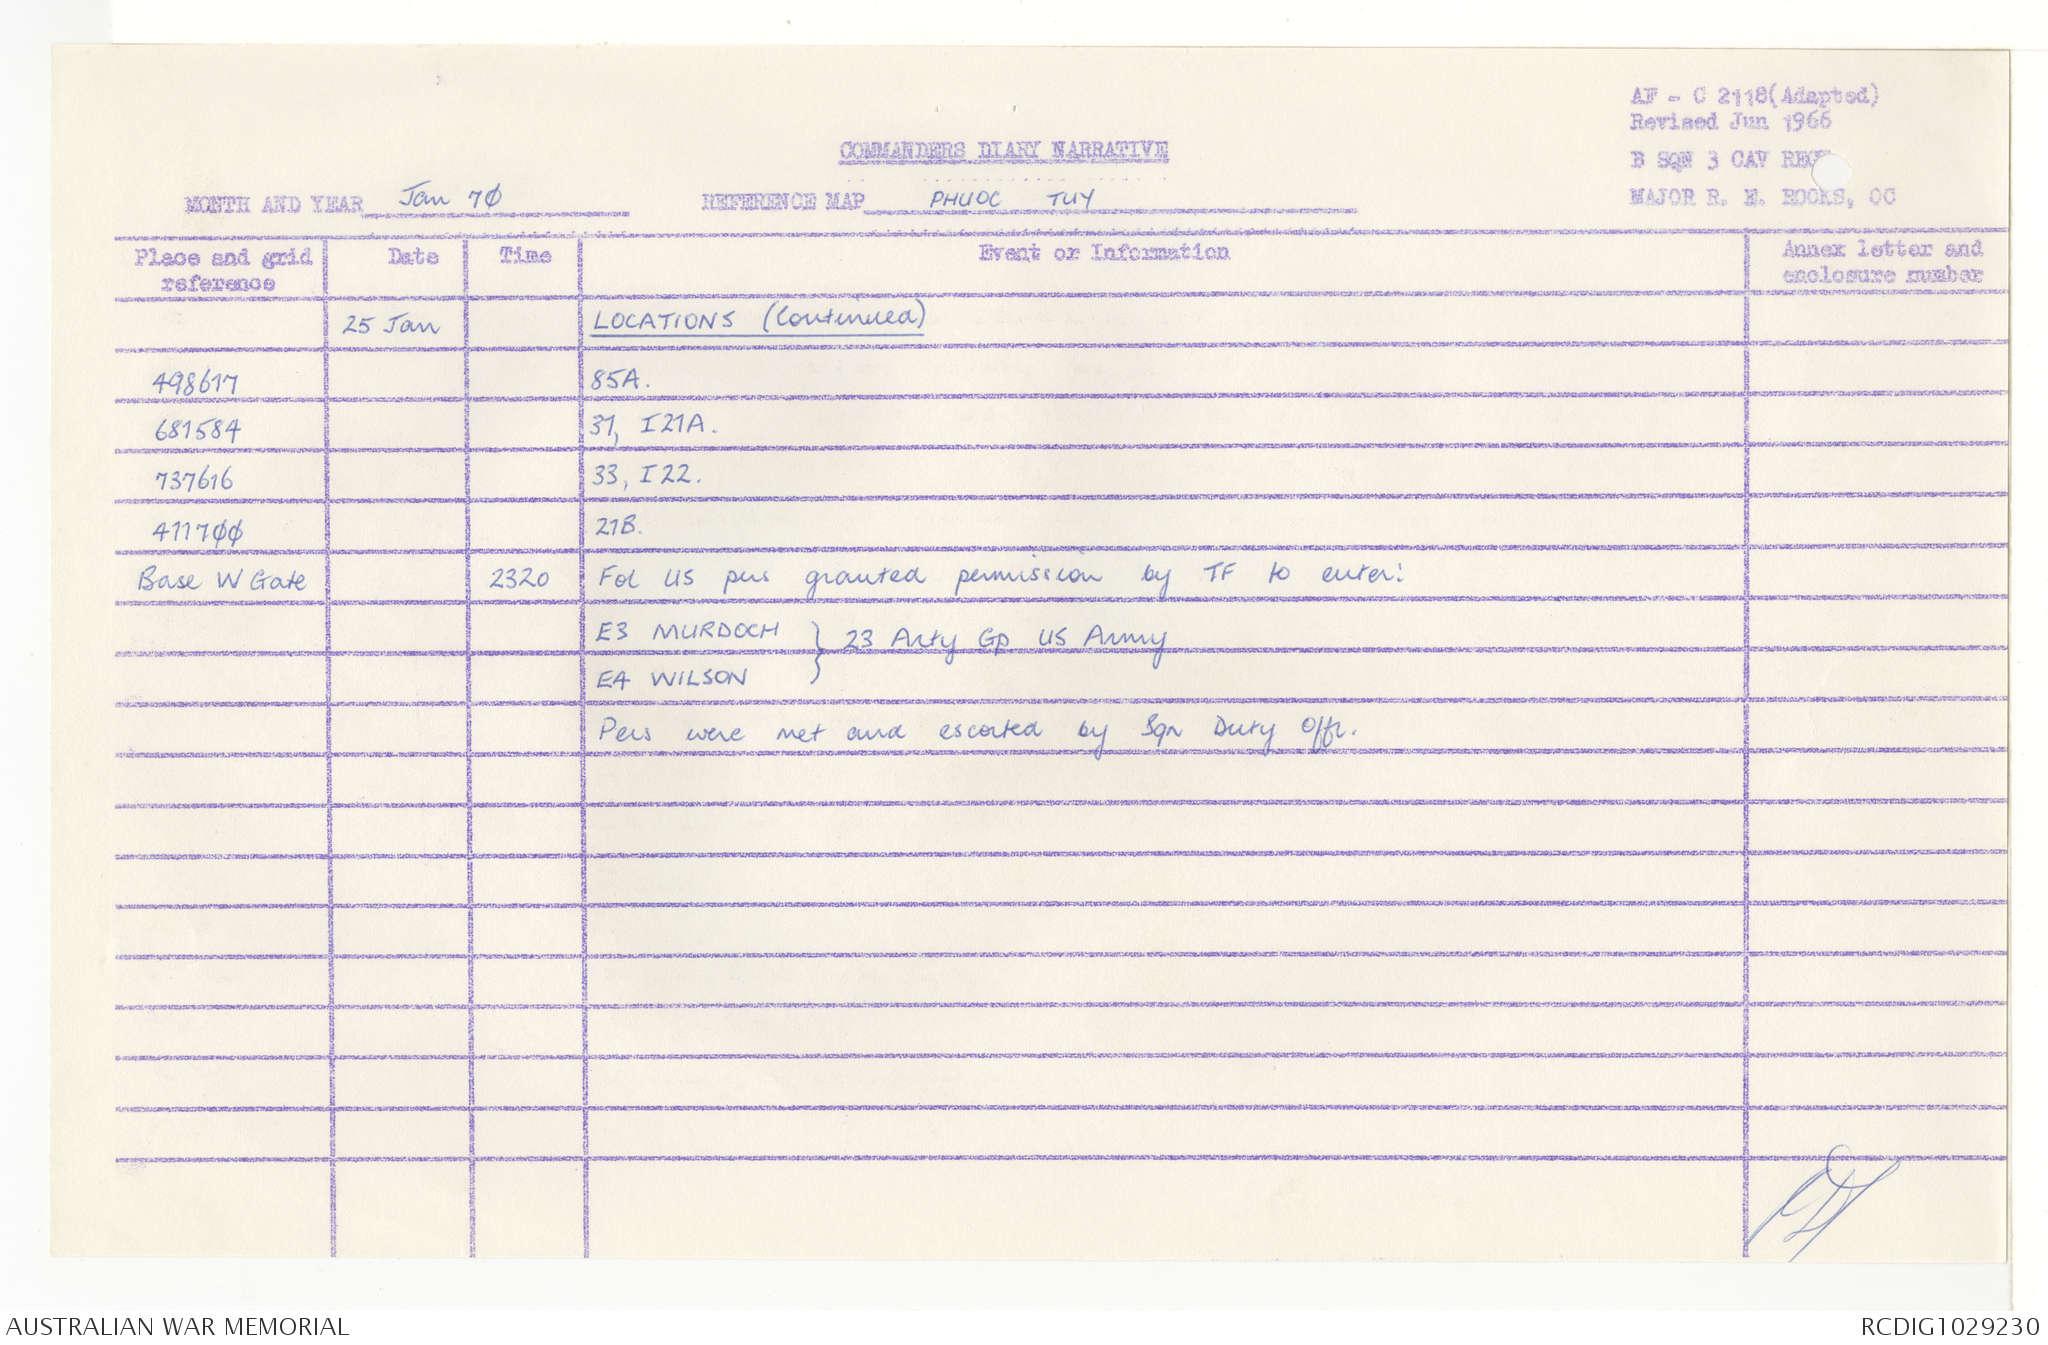 AF - C 2118(Adapted)
Revised Jun 1966
COMMANDERS DIARY NARRATIVE
B SQN 3 CAV REGT
MONTH AND YEAR Jan 7Ø REFERENCE MAP PHUOC TUY
MAJOR R. E. ROOKS, OC
Place and grid reference Date Time Event or Information Annex letter and enclosure number
25 Jan LOCATIONS (Continued)
498617 85A.
681584 31, I21A.
737616 33, I22.
4117ØØ 21B.
Base W Gate 2320 Fol US pers granted permission by TF to enter:
E3 MURDOCH } 23 Arty Gp US Army
E4 WILSON
Pers were met and escorted by Sqn Duty Offr.
AUSTRALIAN WAR MEMORIAL RCDIG1029230